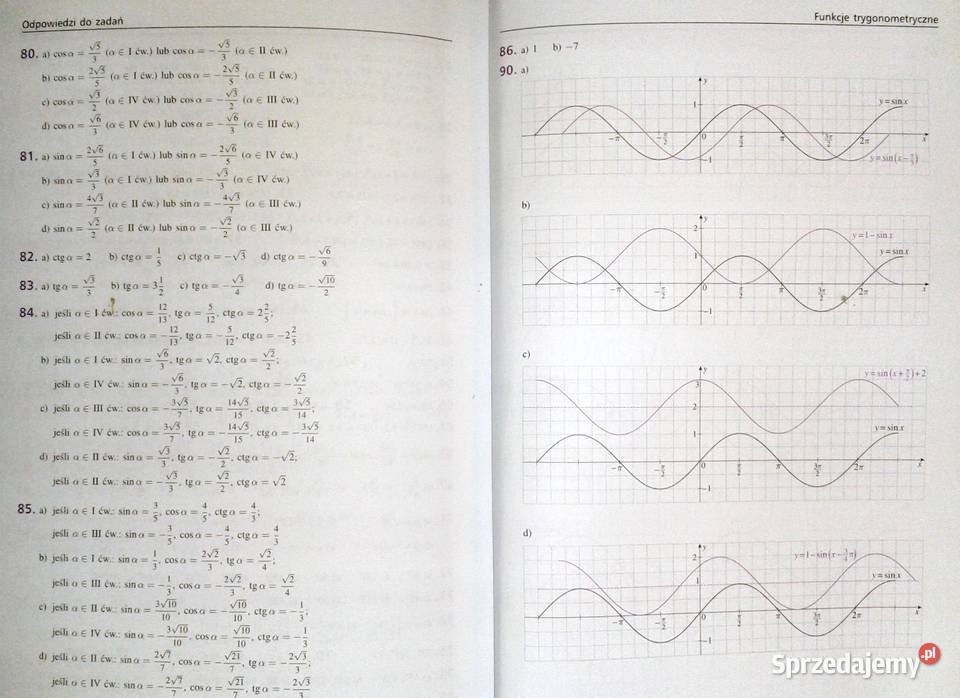 Odpowiedzi do zadań
80. a) cos α = √5/3 (α ∈ I ćw.) lub cos α = −√5/3 (α ∈ II ćw.)
b) cos α = 2√5/5 (α ∈ I ćw.) lub cos α = −2√5/5 (α ∈ II ćw.)
c) cos α = √3/2 (α ∈ IV ćw.) lub cos α = −√3/2 (α ∈ III ćw.)
d) cos α = √6/3 (α ∈ IV ćw.) lub cos α = −√6/3 (α ∈ III ćw.)
81. a) sin α = 2√6/5 (α ∈ I ćw.) lub sin α = −2√6/5 (α ∈ IV ćw.)
b) sin α = √3/3 (α ∈ I ćw.) lub sin α = −√3/3 (α ∈ IV ćw.)
c) sin α = 4√3/7 (α ∈ II ćw.) lub sin α = −4√3/7 (α ∈ III ćw.)
d) sin α = √2/2 (α ∈ II ćw.) lub sin α = −√2/2 (α ∈ III ćw.)
82. a) ctg α = 2 b) ctg α = 1/5 c) ctg α = −√3 d) ctg α = −√6/9
83. a) tg α = √3/3 b) tg α = 3 1/2 c) tg α = −√3/4 d) tg α = −√10/2
84. a) jeśli α ∈ I ćw.: cos α = 12/13, tg α = 5/12, ctg α = 2 2/5;
jeśli α ∈ II ćw.: cos α = −12/13, tg α = −5/12, ctg α = −2 2/5
b) jeśli α ∈ I ćw.: sin α = √6/3, tg α = √2, ctg α = √2/2;
jeśli α ∈ IV ćw.: sin α = −√6/3, tg α = −√2, ctg α = −√2/2
c) jeśli α ∈ III ćw.: cos α = −3√5/7, tg α = 14√5/15, ctg α = 3√5/14;
jeśli α ∈ IV ćw.: cos α = 3√5/7, tg α = −14√5/15, ctg α = −3√5/14
d) jeśli α ∈ II ćw.: sin α = √3/3, tg α = −√2/2, ctg α = −√2;
jeśli α ∈ II ćw.: sin α = −√3/3, tg α = √2/2, ctg α = √2
85. a) jeśli α ∈ I ćw.: sin α = 3/5, cos α = 4/5, ctg α = 4/3;
jeśli α ∈ III ćw.: sin α = −3/5, cos α = −4/5, ctg α = 4/3
b) jeśli α ∈ I ćw.: sin α = 1/3, cos α = 2√2/3, tg α = √2/4;
jeśli α ∈ III ćw.: sin α = −1/3, cos α = −2√2/3, tg α = √2/4
c) jeśli α ∈ II ćw.: sin α = 3√10/10, cos α = −√10/10, ctg α = −1/3;
jeśli α ∈ IV ćw.: sin α = −3√10/10, cos α = √10/10, ctg α = −1/3
d) jeśli α ∈ II ćw.: sin α = 2√7/7, cos α = −√21/7, tg α = −2√3/3;
jeśli α ∈ IV ćw.: sin α = −2√7/7, cos α = √21/7, tg α = −2√3/3
Funkcje trygonometryczne
86. a) 1 b) −7
90. a)
y
1
y = sin x
−π −π/2 0 π/2 π 3π/2 2π x
−1
y = sin(x − π/3)
b)
y
2
y = 1 − sin x
1
y = sin x
−π −π/2 0 π/2 π 3π/2 2π x
−1
c)
y
y = sin(x + π/2) + 2
3
2
1
y = sin x
−π −π/2 0 π/2 π 3π/2 2π x
−1
d)
y
2
y = 1 − sin(x − 3/4 π)
1
y = sin x
−π −π/2 0 π/2 π 3π/2 2π x
−1
Sprzedajemy.pl